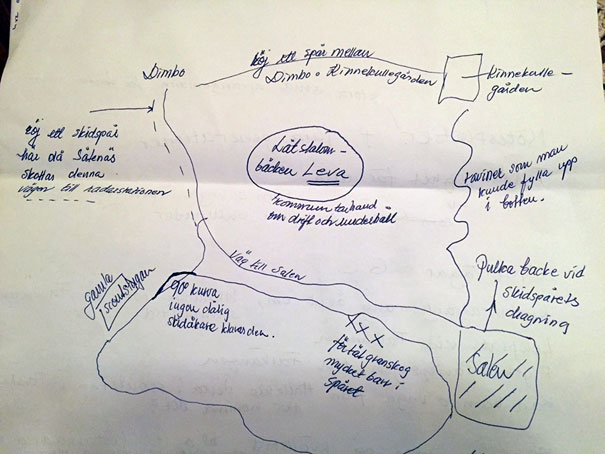 Dimbo
Röj ett spår mellan
Dimbo o Kinnekullegården
Kinnekulle-
gården
röj ett skidspår
här då Såtenäs
skottar denna
vägen till radarstationen
Låt slalom-
backen Leva
kommun tar hand
om drift och underhåll
raviner som man
kunde fylla upp
i botten.
Väg till Salen
gamla
scoutstugan
90° kurva
ingen dålig
skidåkare klarar den.
XXX
för tät granskog
mycket barr i
spåret
Pulka backe vid
skidspårets
dragning
Salen